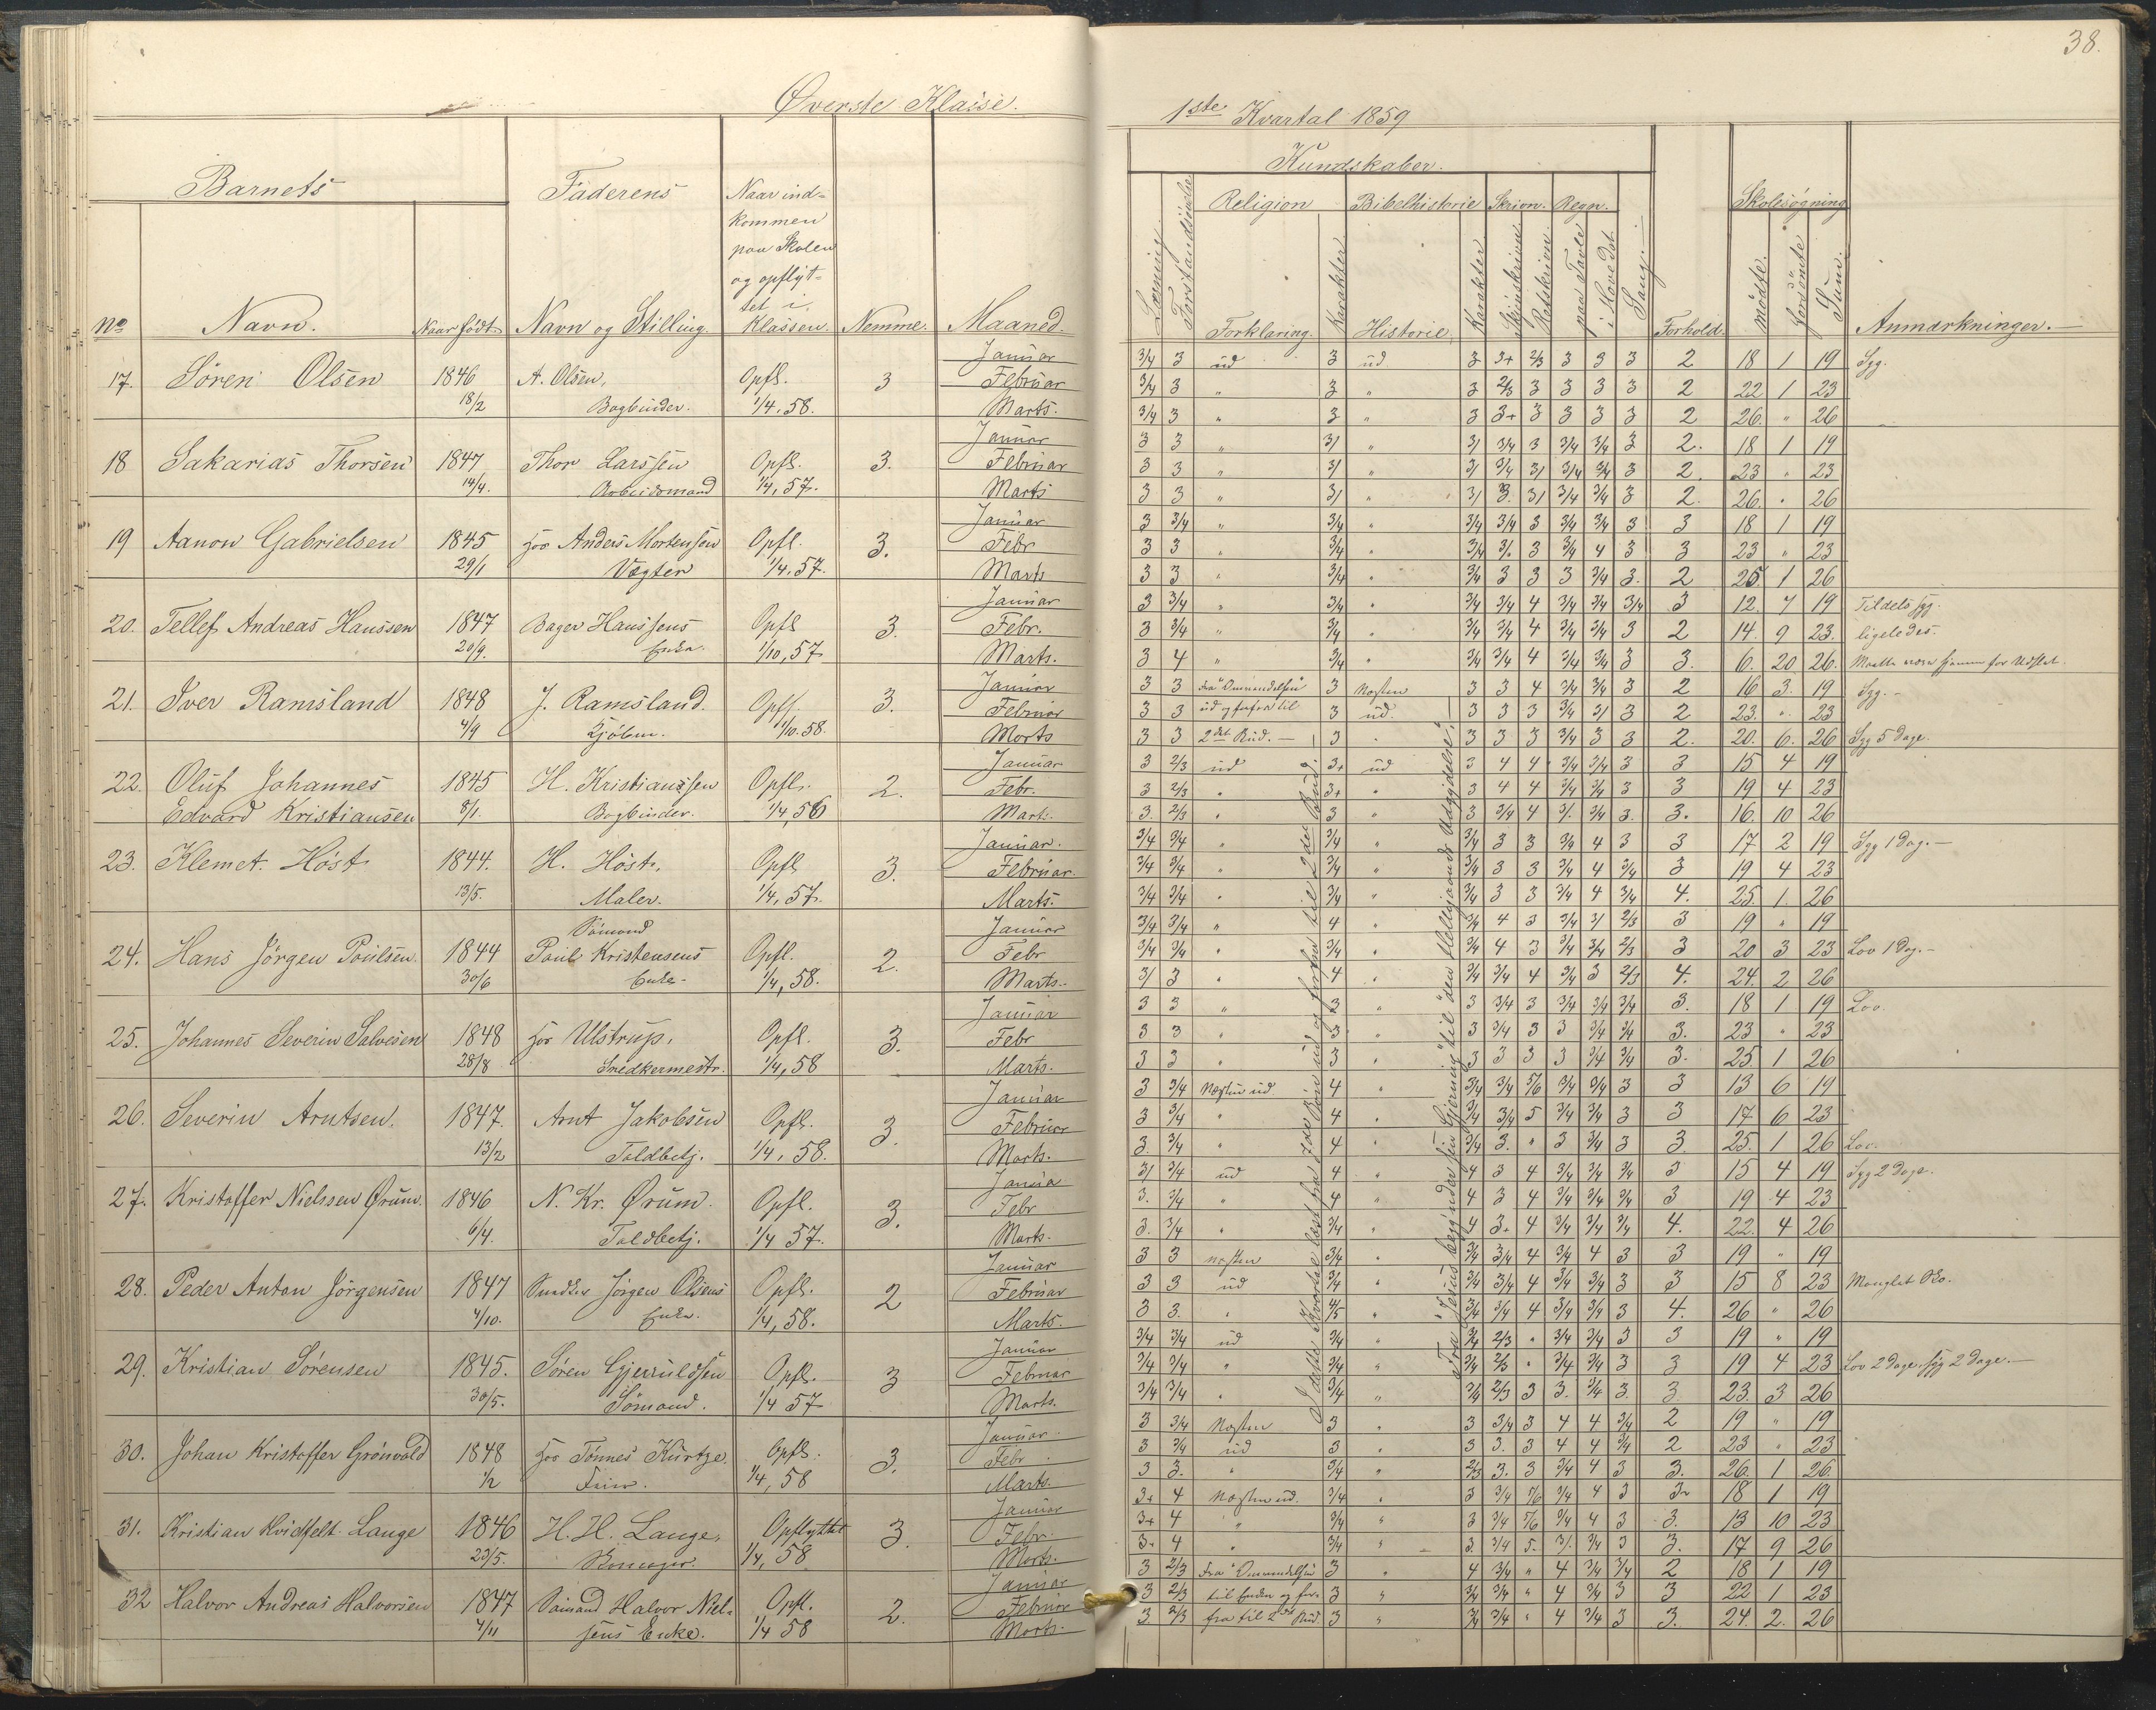 Øverste Klasse.
Barnets
Faderens
Naar ind-
kommen
paa Skolen
og opflyt-
tet i
Klassen.
No
Navn.
Naar født
Navn og Stilling.
Nemme.
Maaned.
17. Sören Olsen 1846 A. Olsen, Opfl. 3 Januar
Februar
18/2 Bogbinder. 1/4. 58. Marts.
18 Sakarias Thorsen 1847 Thor Larssen Opfl. 3. Januar
Februar
14/4. Arbeidsmand 1/4, 57. Marts
19 Aanon Gabrielsen 1845 hos Anders Mortensen Opfl. 3. Januar
Febr
29/1 Vægter 1/4. 57. Marts
20. Tellef Andreas Hanssen 1847 Bager Hanssens Opfl 3. Januar
Febr.
20/9. Enke. 1/10, 57 Marts.
21. Iver Ramsland 1848 J. Ramsland. Opfl. 3. Januar
Februar
4/9 Kjöbm. 1/10. 58. Marts
22. Oluf Johannes 1845 H. Kristianssen Opfl. 2. Januar
Febr.
Edvard Kristiansen 8/1. Bogbinder. 1/4, 56 Marts.
23. Klemet Höst 1844. H. Höst, Opfl 3. Januar.
Februar.
13/5. Maler. 1/4, 57. Marts.
Sömand
24. Hans Jörgen Poulsen 1844 Poul Kristensens Opfl. 2. Januar
Febr
30/6 Enke. 1/4, 58. Marts.
25. Johannes Severin Salvesen 1848 hos Ulstrup, Opfl. 3. Januar
Febr
28/8 Snedkermestr. 1/4, 58 Marts.
26. Severin Arntsen. 1847. Arnt Jakobsen Opfl. 3. Januar
Februar
13/2 Toldbetj. 1/4, 58. Marts.
27. Kristoffer Nielssen Ørum. 1846 N. Kr. Ørum. Opfl. 3. Janua
Febr
6/4. Toldbetj. 1/4 57. Marts.
28. Peder Anton Jörgensen 1847 Snedker Jörgen Olsens Opfl. 2 Januar
Februar
4/10. Enke. 1/4, 58. Marts.
29. Kristian Sörensen 1845. Sören Opfl. 3 Januar
Februar
30/5. Sömand. 1/4 57 Marts.
30. Johan Kristoffer Grönvold 1848 hos Tönnes Kurtze Opfl. 3. Januar.
Febr
1/2 Feier. 1/4, 58 Marts.
31. Kristian Hvidtfelt Lange 1846 H. H. Lange, Opflyttet 3. Januar
Febr.
23/5. 1/4, 58 Marts.
32 Halvor Andreas Halvorsen 1847 Sömand Halvor Niel- Opfl. 2. Januar
Februar
4/11 sens Enke. 1/4 58 Marts.
38.
1ste Kvartal 1859
Kundskaber.
Læsning.
Forstandsøvelse
Religion
Forklaring.
Karakter.
Bibelhistorie
Historie.
Karakter.
Skrivn.
Skjönskrivn
Retskrivn.
Regn.
paa Tavle
i Hovedet
Sang.
Forhold.
Skolesøgning
mødte.
forsømte
Sum.
Anmærkninger.
3/4 3 ud 3 ud 3 3+ 2/3 3 3 3 2 18 1 19 Syg.
3/4 3 " 3 " 3 2/3 3 3 3 3 2 22 1 23
3/4 3 " 3 " 3 3+ 3 3 3 3 2 26. " 26
3 3 " 31 " 31 3/4 3 3/4 3/4 3 2. 18 1 19
3 3 " 31 " 31 3/4 31 3/4 3/4 3 2. 23 " 23
3 3 " 31 " 31 3. 31 3/4 3/4 3 2. 26. " 26
3 3/4 " 3/4 " 3/4 3/4 3 3/4 3/4 3 3 18 1 19
3 3 " 3/4 " 3/4 3/. 3 3/4 4 3 3 23 " 23
3 3 " 3/4 " 3/4 3 3 3 3/4 3. 2 25 1 26
3 3/4 " 3/4 " 3/4 3/4 4 3/4 3/4 3/4 3 12. 7 19 Tildels syg.
3 3/4 " 3/4 " 3/4 3/4 4 3/4 3/4 3 2 14. 9 23. ligeledes.
3 4 " 3/4 " 3/4 3/4 4 3/4 3/4 3 3. 6. 20 26. Maatte være hjemme for Udslet.
3 3 Fra "Omvendelsen" 3 Næsten 3 3 4 3/4 3/4 3 2 16 3. 19 Syg.
3 3 ud og forfra til 3 ud. 3 3 3 3/4 31 3 2 23. " 23
3 3 2det Bud. 3 " 3 3 3 3/4 3 3 2. 20. 6. 26 Syg 5 Dage.
3 2/3 ud 3+ ud 3 4 4 3/4 3/4 3 3 15 4 19
3 2/3 " 3+ " 3 4 4 3/4 3/4 3 3 19 4 23
3. 2/3 " 3 " 3 3/4 4 3/. 3/4 3. 3. 16. 10 26
3/4 3/4 " 3/4 " 3/4 3 3 3/4 4 3 3 17 2 19 Syg 1 Dag.
3/4 3/4 " 3/4 " 3/4 3 3 3/4 4 3/4 3 19 4 23
3/4 3/4 " 3/4 " 3/4 3 3 3/4 4 3/4 4. 25. 1. 26
3/4 3/4 " 4 " 3/4 4 3 3/4 31 2/3 3 19 " 19
3/4 3/4 " 3/4 " 3/4 4 3 3/4 3/4 2/3 3 20 3 23 Lov 1 Dag.
31 3 " 4 " 3/4 3/4 4 3/4 3 2/3 4. 24. 2 26
3 3 " 3 " 3 3/4 3 3/4 3/4 3/4 3. 18 1 19 Lov.
3 3 " 3 " 3 3/4 3 3 3/4 3/4 3. 23 " 23
3 3 " 3 " 3 3 3 3 3/4 3/4 3. 25. 1 26
3 3/4 Næsten ud 4 " 3/4 3/4 5/6 3/4 3/4 3 3 13 6 19
3 3/4 " 4 " 3/4 3/4 5 3/4 3/4 3 3 17 6 23
3. 3/4 " 4 " 3/4 3. " 3 3/4 3 3. 25. 1 26 Lov.
31 3/4 ud 4 " 4 3 4 3/4 3/4 3/4 3 15 4 19 Syg 2 Dage.
3. 3/4 " 4 " 4 3 4 3/4 3/4 3/4 3 19 4 23
3. 3/4 " 3/4 " 4 3+ 4 3/4 3/4 3/4 4. 22. 4 26
3 3 næsten 3/4 " 3/4 3/4 4 3/4 4 3 3 19 " 19
3 3 ud 3/4 " 3/4 3/4 4 3/4 3/4 3 3 15 8 23 Manglet Sko.
3 3. " 4/5 " 3/4 3/4 4 3/4 3/4 3 4. 26 " 26
3/4 3/4 ud 3/4 " 3/4 2/3 " 3/4 3/4 3 3 19 " 19
3/4 3/4 " 3/4 " 3/4 2/3 " 3/4 3/4 3 3 19 4 23 Lov 2 Dage. syg 2 Dage.
3/4 3/4 " 3/4 " 3/4 2/3 3 3. 3/4 3. 3. 23. 3 26
3 3/4 Næsten 3 " 3 3/4 3 4 4 3/4 2 19 " 19
3 3/4 ud 3 " 3 3. 3 4 4 3/4 2 23 " 23
3 3. " 3/4 " 2/3 3. 3 3/4 4 3 3. 26. 1 26.
3+ 4 Næsten ud. 3/4 " 3 3/4 5/6 3/4 4 3 3 18 1 19
3+ 4 " 3/4 " 3 3/4 5/6 3/4 4 3 3. 13 10 23
3+ 4 " 3/4 " 3. 3/4 5. 3/. 3/4 3 3. 17 9 26
3 2/3 Fra "Omvendelsen 3 " 4 3/4 " 4 3/4 3/4 2 18 1 19
3 2/3 til Enden og for- 3 " 3/4 3/4 " 4 3/4 3 3 22 1 23
3. 2/3 fra til 2det Bud 3 " 3/4 3/4 " 4 3/4 3 3. 24. 2. 26
I dette Kvartal læst fra 7de Bön ud og forfra til 2det Bud.
Fra "Jesus begynder sin Gjerning" til "den Helligaands Udgydelse".